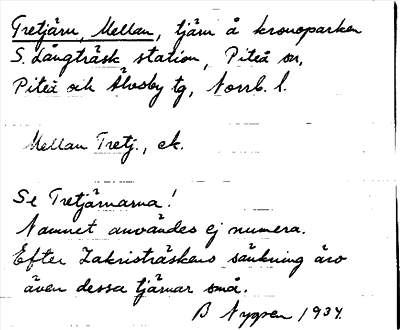 Tretjärn, Mellan, tjärn å kronoparken
S. Långträsk station, Piteå sn,
Piteå och Älvsby tg, Norrb. l.
Mellan Tretj., ek.
Se Tretjärnarna!
Namnet användes ej numera.
Efter Zakristräskens sänkning äro
även dessa tjärnar små.
B Nygren 1937.